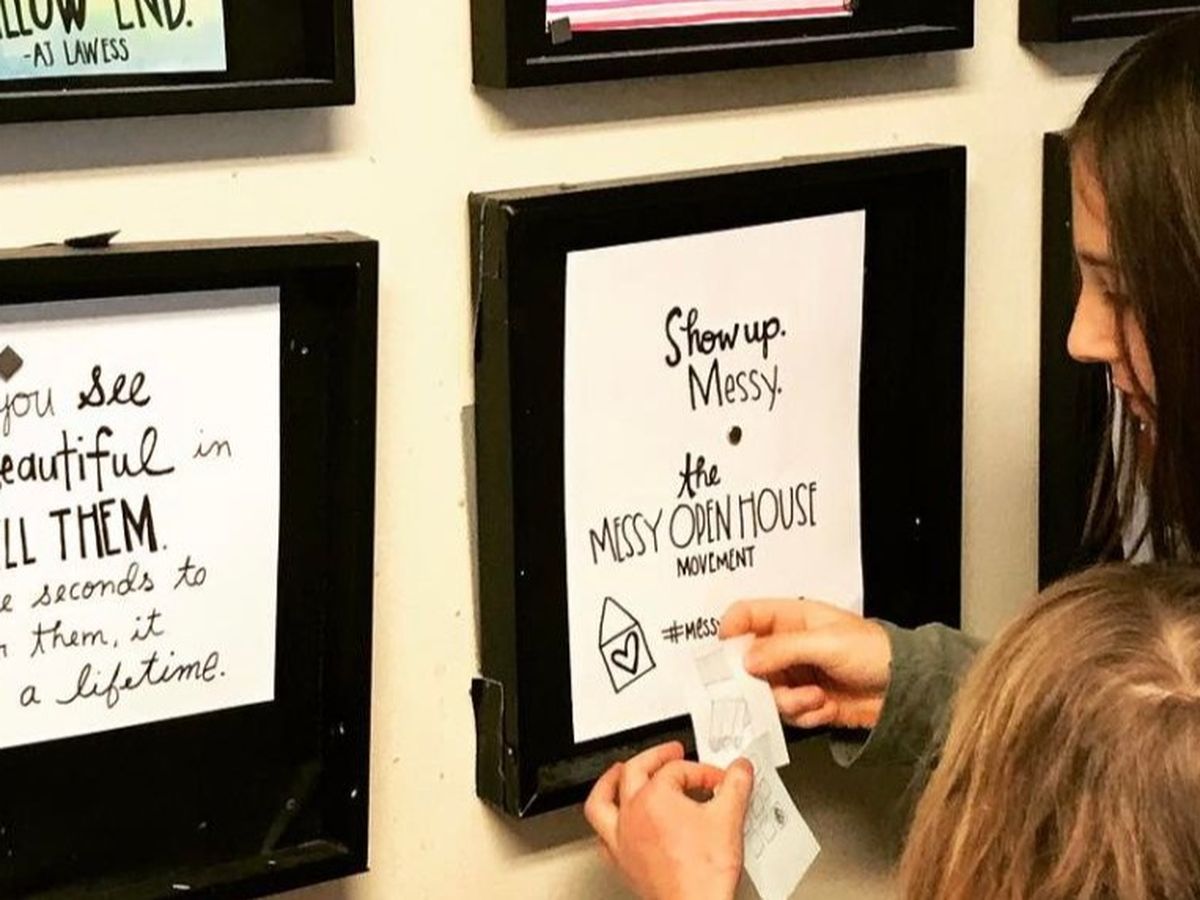 END.
-AJ LAWESS
you see
in
THEM.
seconds to
them, it
a lifetime.
Show up.
Messy.
the
MESSY OPEN HOUSE
MOVEMENT